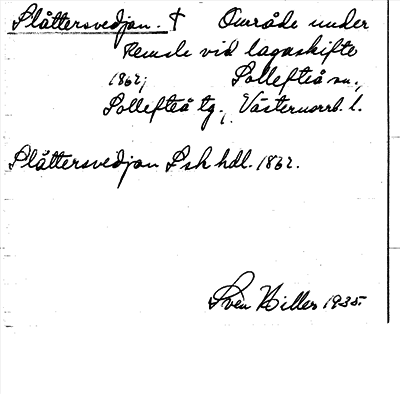 Slåttersvedjan. † Område under
Remsle vid lagaskifte
1862; Sollefteå sn.,
Sollefteå tg., Västernorrl. l.
Slåttersvedjan Lsk hdl. 1862.
Sven Hiller 1935.